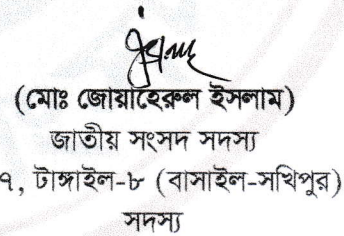 (মোঃ জোয়াহেরুল ইসলাম)
জাতীয় সংসদ সদস্য
৭, টাঙ্গাইল-৮ (বাসাইল-সখিপুর)
সদস্য